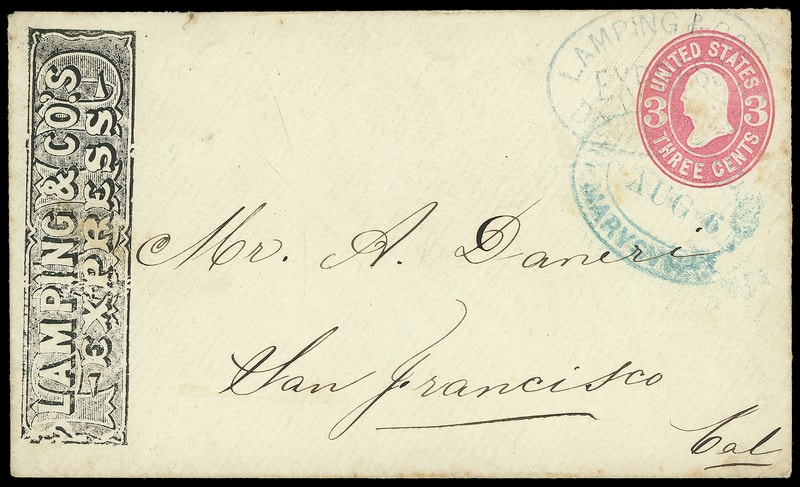 LAMPING & CO'S
EXPRESS
LAMPING & CO
UNITED STATES
3 3
THREE CENTS
AUG 6
Mr. A. Daneri
San Francisco
Cal